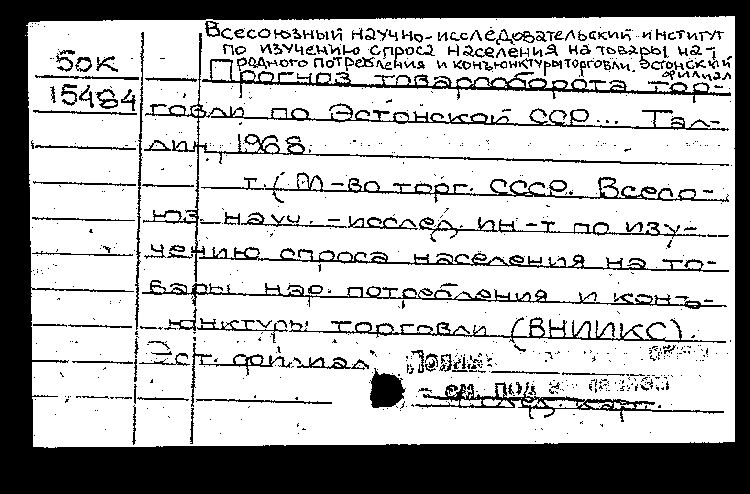 Всесоюзный научно-исследовательский институт
по изучению спроса населения на товары на-
родного потребления и конъюнктуры торговли. Эстонский
филиал
50К
15484
Прогноз товарооборота тор-
говли по Эстонской ССР... Тал-
лин, 1968.
т. (М-во торг. СССР. Всесо-
юз. науч.-исслед. ин-т по изу-
чению спроса населения на то-
вары нар. потребления и конъ-
юнктуры торговли (ВНИИКС).
Эст. филиал)
- см. под
след. карт.